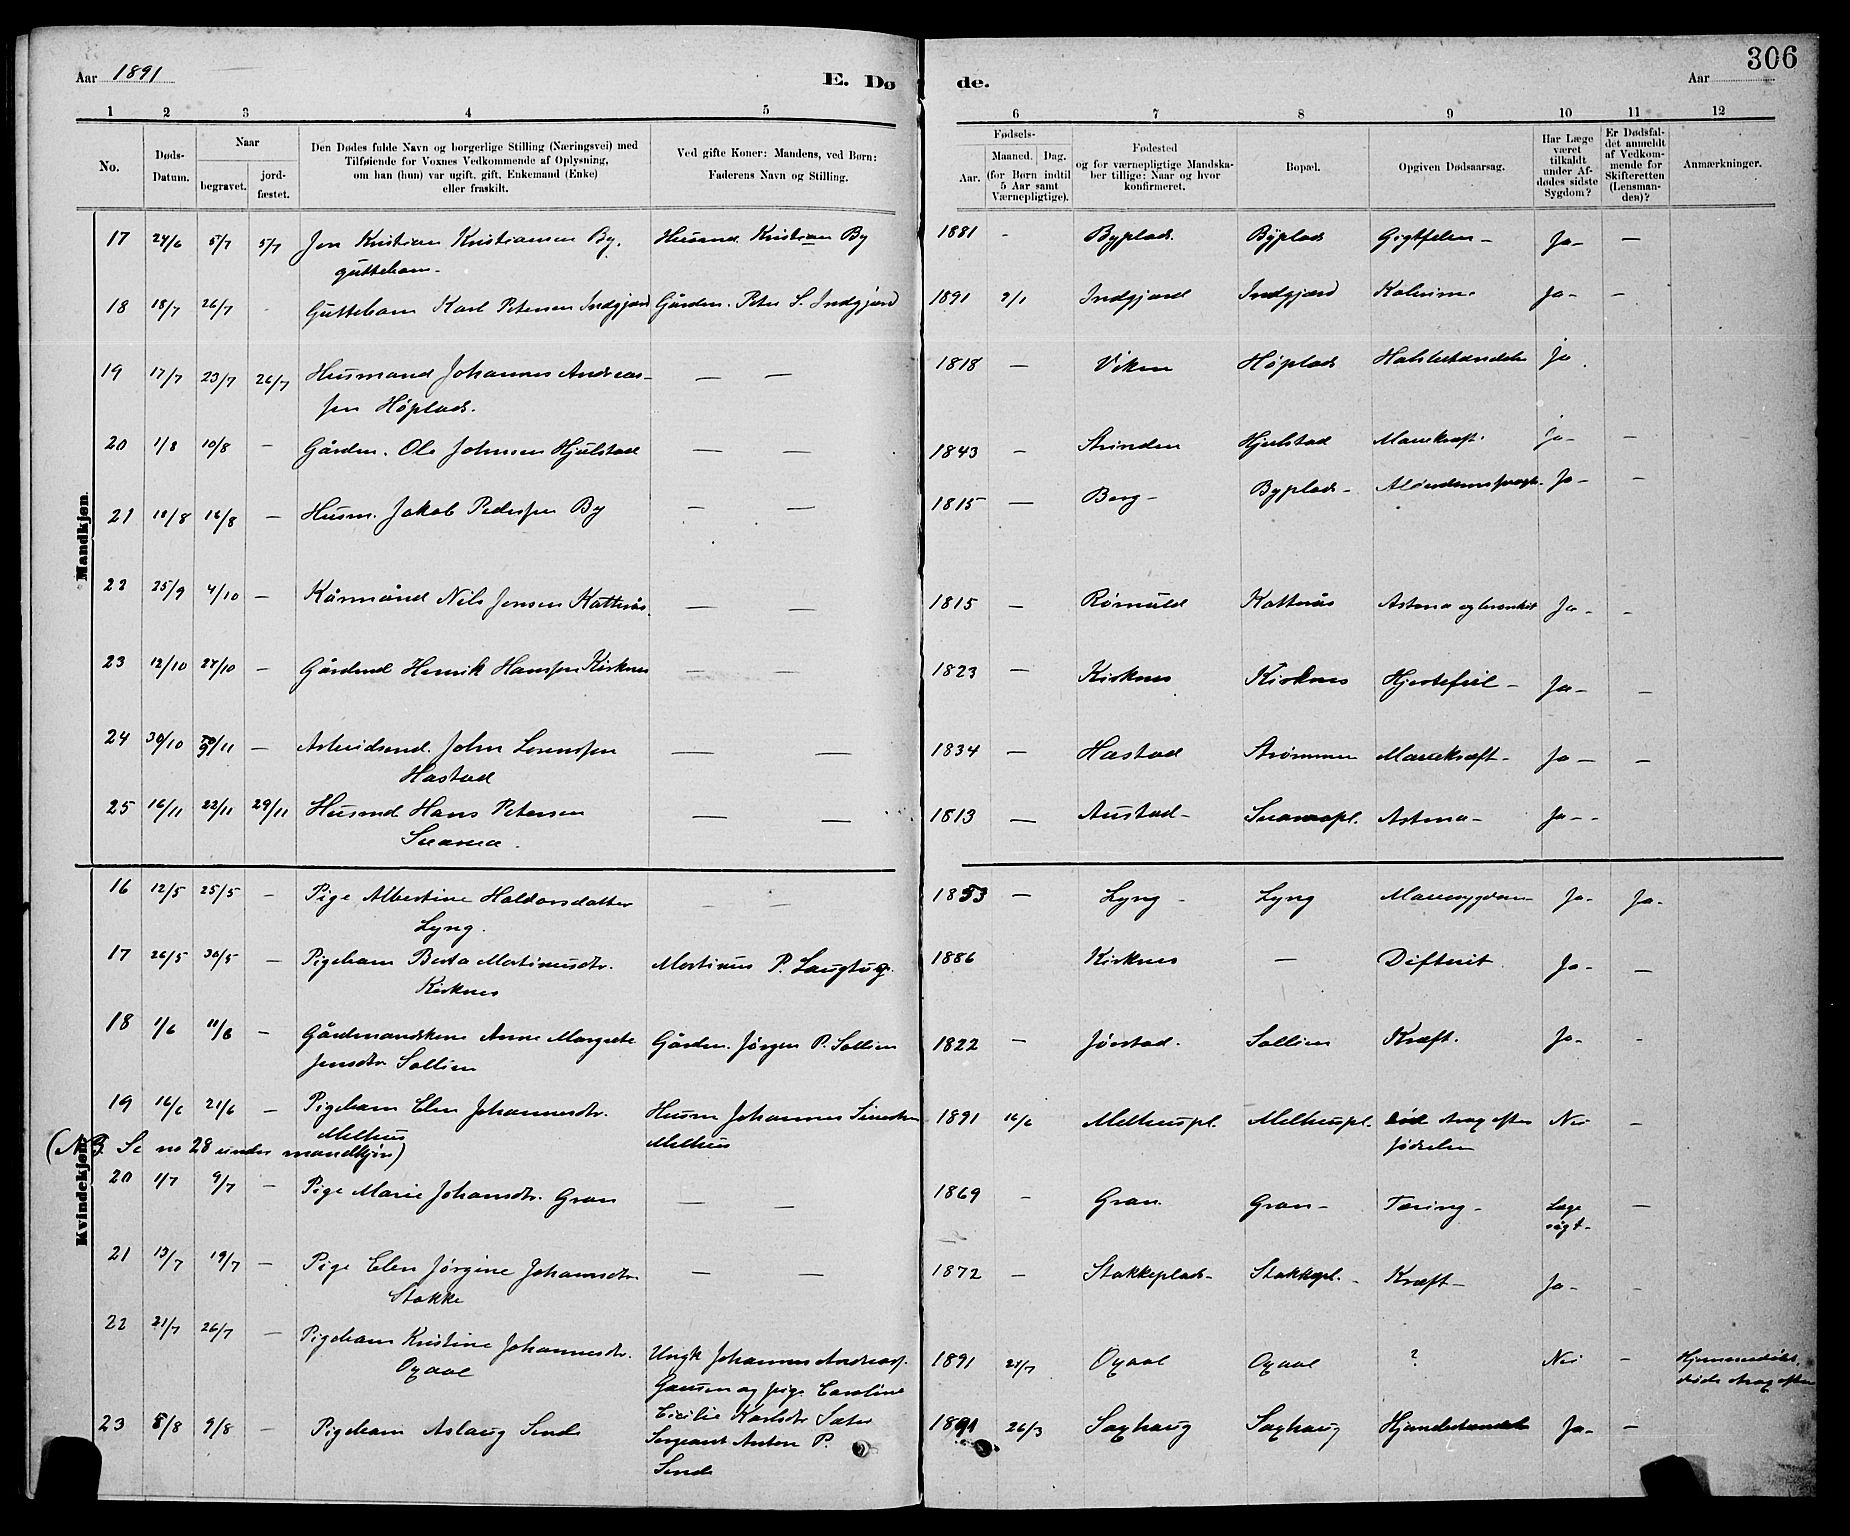 Aar 1891
E. Dø de.
Aar
306
1 2 3 4 5 6 7 8 9 10 11 12
No.
Døds-Datum.
Naar
begravet.
jord-fæstet.
Den Dødes fulde Navn og borgerlige Stilling (Næringsvei) med
Tilføiende for Voxnes Vedkommende af Oplysning,
om han (hun) var ugift, gift, Enkemand (Enke)
eller fraskilt.
Ved gifte Koner: Mandens, ved Børn:
Faderens Navn og Stilling.
Fødsels-
Aar.
Maaned. Dag.
(for Børn indtil
5 Aar samt
Værnepligtige).
Fødested
og for værnepligtige Mandska-
ber tillige: Naar og hvor
konfirmeret.
Bopæl.
Opgiven Dødsaarsag.
Har Læge
været
tilkaldt
under Af-
dødes sidste
Sygdom?
Er Dødsfal-
det anmeldt
af Vedkom-
mende for
Skifteretten
(Lensman-
den)?
Anmærkninger.
Mandkjøn.
17 24/6 5/7 5/7 Jon Kristian Kristiansen By. Husmd. Kristian By 1881 - Byplads. Byplads Gigtfeber - Ja - —
guttebarn -
18 18/7 26/7 - Guttebarn Karl Petersen Indgjærd Gårdm. Peter S. Indgjærd 1891 2/1 Indgjærd Indgjærd Kolerine Ja - —
19 17/7 23/7 26/7 Husmand Johannes Andreas- — — 1818 — Viken Høplads Halsbetændelse Ja
sen Høplads.
20 1/8 10/8 — Gårdm. Ole Johnsen Hjulstad — — 1843 — Strinden Hjulstad Mavekræft. Ja - —
21 10/8 16/8 — Husm. Jakob Pedersen By — — 1815 — Berg - Byplads - Alderdomssvagh. Ja - —
22 25/9 4/10 — Kårmand Nils Jensen Kattuås. — — 1815 — Rømuld Kattuås Astma og bronkit Ja - —
23 12/10 27/10 — Gårdmd Henrik Hanssen Kirknes — — 1823 — Kirknes Kirknes Hjertefeil - Ja - —
24 30/10 /11 — Arbeidsmd. John Lorentsen — — 1834 — Hastad Strømmen Mavekræft - Ja — —
Hastad
25 16/11 22/11 29/11 Husmd Hans Petersen — — 1813 — Austad - Snaasapl. Astma - Ja - -
Kvindekjøn.
16 12/5 25/5 — Pige Albertine Haldorsdatter — — 1853 — Lyng - Lyng Mavesygdom Ja - Ja -
Lyng.
17 26/5 30/5 — Pigebarn Berta Martinusdtr. Martinus P. Laugtug. 1886 Kirknes — Difterit Ja - —
Kirknes
18 1/6 11/6 — Gårdmandskone Anne Margrete Gårdm. Jørgen P. Sollien 1822 — Jørstad. Sollien Kræft. Ja - -
Jensdtr Sollien
19 16/6 21/6 — Pigebarn Elen Johannesdtr. Husm Johannes 1891 16/6 Melhuspl. Melhuspl. strax efter Nei —
Melhus Melhus fødselen
(NB. Se no 28 under mandkjøn)
20 1/7 9/7 — Pige Marie Johansdtr. Gran — — 1869 - Gran. Gran - Tæring - Læge —
søgt -
21 13/7 19/7 — Pige Elen Jørgine Johansdtr. — — 1872 — Stokkeplads - Stokkepl. - Kræft - Ja - -
Stokke
22 21/7 26/7 — Pigebarn Kristine Johannesdtr. Ungk Johannes Andreas. 1891 21/7 Oxaal Oxaal ? Nei — Hjemmedøbt.
Oxaal og pige Caroline døde strax efter
Cicilie Karlsdtr Sæter
23 8/8 9/8 — Pigebarn Aslaug Sende Sergeant Anton P. 1891 26/3 Saxhaug Saxhaug Hjernebetændelse Ja - —
Sende